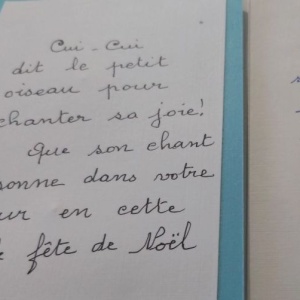 Cui-Cui
dit le petit
oiseau pour
chanter sa joie!
Que son chant
sonne dans votre
en cette
fête de Noël